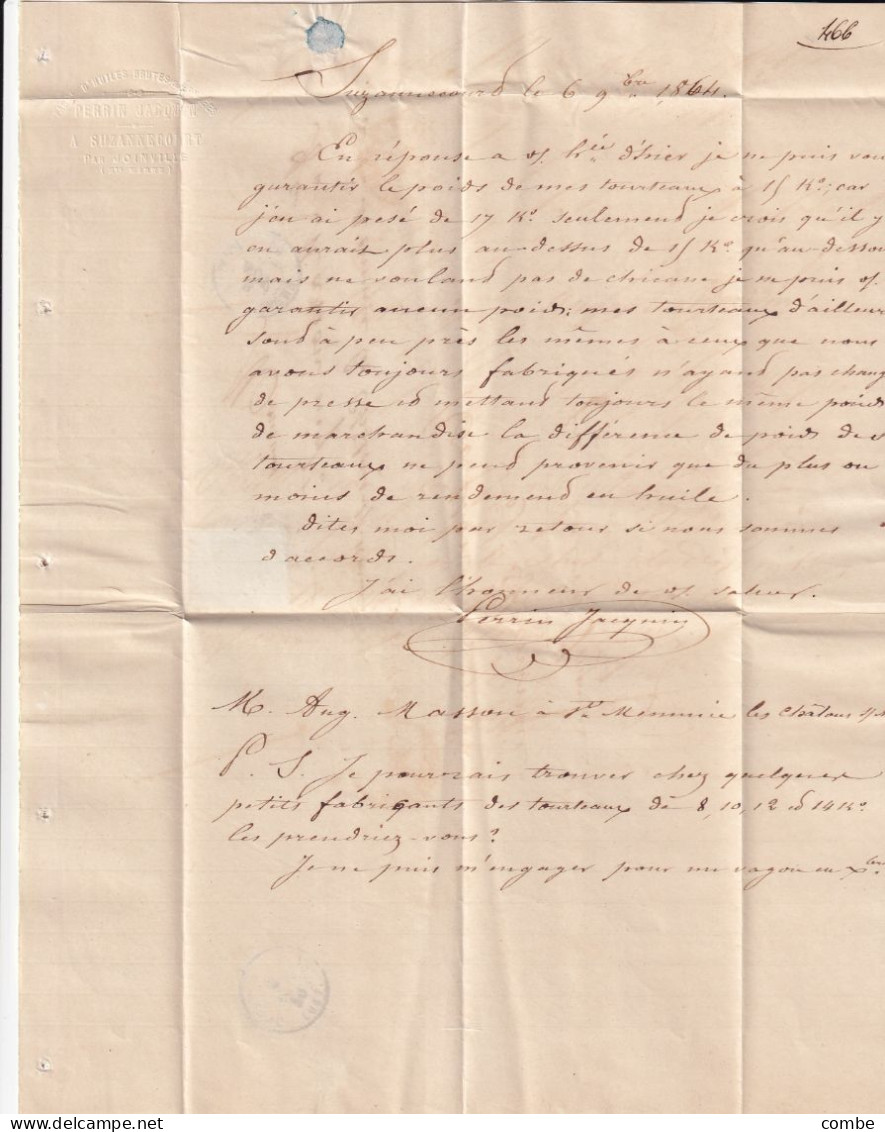 466
D'HUILES
PERRIN JACQUIN
A SUZANNECOURT
PAR JOINVILLE
(HTE MARNE)
Suzannecourd le 6 9bre 1864.
En réponse a v/. hrée d'hier je ne puis vou
garantir le poids de mes tourteaux à 15 Ko; car
j'en ai pesé de 17 Ko. seulemend je crois qu'il y
en aurait plus au-dessus de 15 Ko. qu'au-dessou
mais ne vouland pas de chicane je ne puis v/.
garantir aucun poids; mes tourteaux d'ailleur
sond à peu près les mêmes à ceux que nous
avons toujours fabriqués n'ayand pas chang
de presse ed mettand toujours le même poids
de marchandise la différence de poids des
tourteaux ne peud provenir que du plus ou
moins de rendemend en huile.
Dites moi par retour si nous sommes
d'accords.
J'ai l'honneur de v/. saluer.
Perrin Jacquin
M. Aug. Masson à St Memmie les Châlons s/
P. S. Je pourrais trouver chez quelques
petits fabriquants des tourteaux de 8, 10, 12 ed 14 Ko.
les prendriez-vous?
Je ne puis m'engager pour un vagon en Xbre
combe